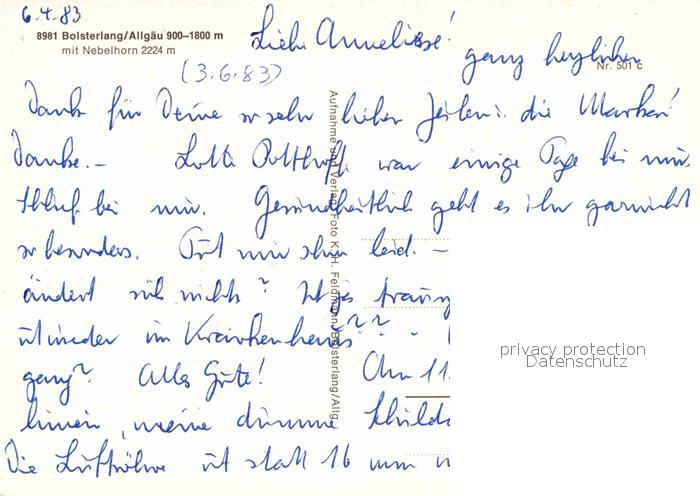 6.4.83
8981 Bolsterlang/Allgäu 900–1800 m
mit Nebelhorn 2224 m
Liebe Anneliese!
ganz herzlichen
Nr. 501 c
(3.6.83)
Dank für Deine so sehr lieben Zeilen: die Marken!
Danke. – Lotte Potthoff war einige Tage bei mir,
bei mir. Gesundheitlich geht es ihr garnicht
so besonders. Tut mir sehr leid. –
ändert sich nichts? Ist ja traurig
ist wieder im Krankenhaus?? –
ganz? Alles Gute! Am 11.
hinein, meine dumme Schild
Die Luftröhre ist statt 16 mm
Aufnahme und Verlag: Foto K. H. Feldmann, Bolsterlang/Allg.
privacy protection
Datenschutz